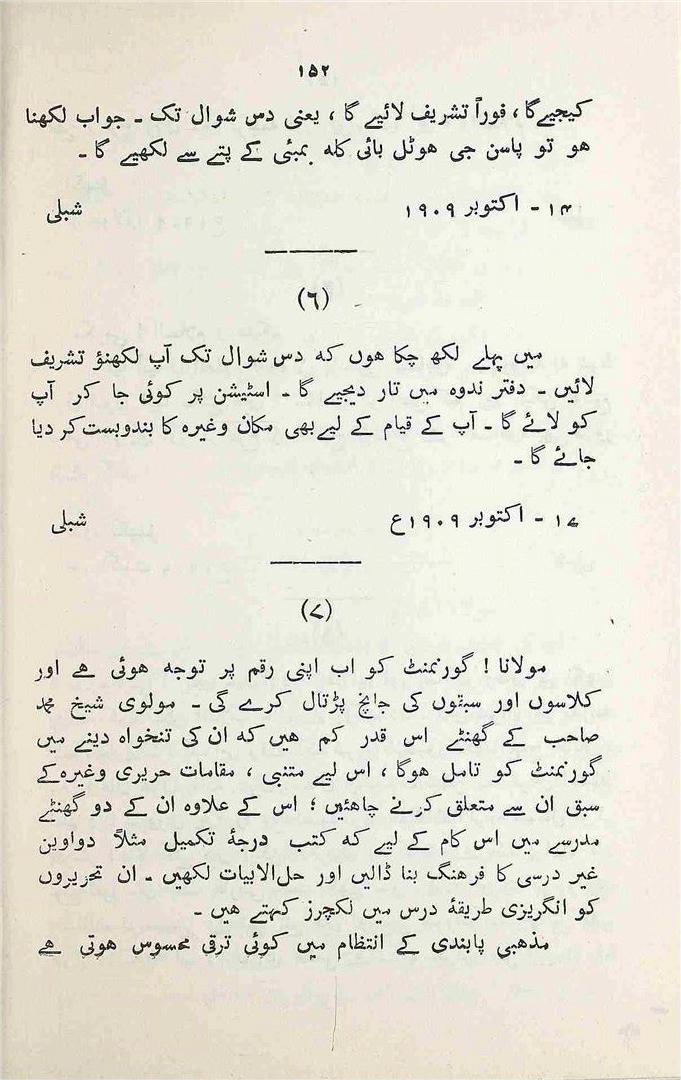 ۱۵۲
کیجیےگا ، فوراً تشریف لائیے گا ، یعنی دس شوال تک ۔ جواب لکھنا
هو تو پاسن جی هوٹل بائی کله بمبئی کے پتے سے لکھیے گا ۔
۱۴ ۔ اکتوبر ۱۹۰۹ شبلی
(٦)
میں پہلے لکھ چکا هوں که دس شوال تک آپ لکھنؤ تشریف
لائیں ۔ دفتر ندوه میں تار دیجیے گا ۔ اسٹیشن پر کوئی جا کر آپ
کو لائے گا ۔ آپ کے قیام کے لیےبھی مکان وغیره کا بندوبست کر دیا
جائے گا ۔
۱۷ ۔ اکتوبر ۱۹۰۹ع شبلی
(۷)
مولانا ! گورنمنٹ کو اب اپنی رقم پر توجه هوئی هے اور
کلاسوں اور سبقوں کی جانچ پڑتال کرے گی ۔ مولوی شیخ محمد
صاحب کے گھنٹے اس قدر کم هیں که ان کی تنخواه دینے میں
گورنمنٹ کو تامل هوگا ، اس لیے متنبی ، مقامات حریری وغیره کے
سبق ان سے متعلق کرنے چاهئیں ؛ اس کے علاوه ان کے دو گھنٹے
مدرسے میں اس کام کے لیے که کتب درجهٔ تکمیل مثلاً دواوین
غیر درسی کا فرهنگ بنا ڈالیں اور حل الابیات لکھیں ۔ ان تحریروں
کو انگریزی طریقهٔ درس میں لکچرز کہتے هیں ۔
مذهبی پابندی کے انتظام میں کوئی ترقی محسوس هوتی هے